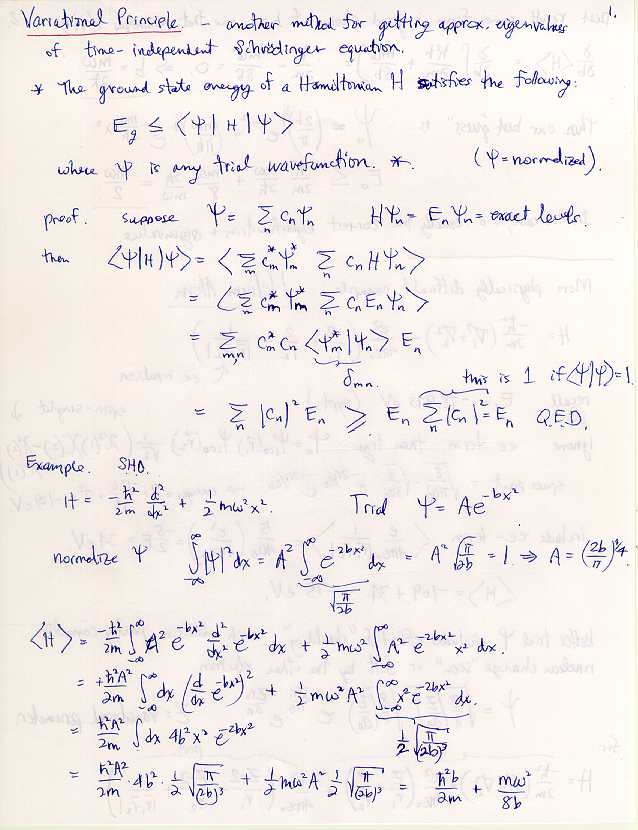 1.
Variational Principle - another method for getting approx. eigenvalues
of time-independent Schrödinger equation.
* The ground state energy of a Hamiltonian H satisfies the following:
E_g ≤ ⟨Ψ|H|Ψ⟩
where Ψ is any trial wavefunction. *. (Ψ = normalized).
proof. suppose Ψ = Σ_n c_n Ψ_n HΨ_n = E_n Ψ_n = exact levels.
then ⟨Ψ|H|Ψ⟩ = ⟨ Σ_m c_m^* Ψ_m^* Σ_n c_n HΨ_n ⟩
= ⟨ Σ_m c_m^* Ψ_m^* Σ_n c_n E_n Ψ_n ⟩
= Σ_{m,n} c_m^* c_n ⟨Ψ_m^*|Ψ_n⟩ E_n
δ_mn. this is 1 if ⟨Ψ|Ψ⟩=1.
= Σ_n |c_n|² E_n ≥ E_n Σ_n |c_n|² = E_n Q.E.D.
Example. SHO.
H = -ħ²/2m d²/dx² + 1/2 mω²x². Trial Ψ = Ae^{-bx²}
normalize Ψ ∫_{-∞}^{∞} |Ψ|² dx = A² ∫_{-∞}^{∞} e^{-2bx²} dx = A² √(π/2b) = 1. ⇒ A = (2b/π)^{1/4}.
√(π/2b)
⟨H⟩ = -ħ²/2m ∫_{-∞}^{∞} A² e^{-bx²} d²/dx² e^{-bx²} dx + 1/2 mω² ∫_{-∞}^{∞} A² e^{-2bx²} x² dx.
= +ħ²A²/2m ∫_{-∞}^{∞} dx (d/dx e^{-bx²})² + 1/2 mω² A² ∫_{-∞}^{∞} x² e^{-2bx²} dx.
= ħ²A²/2m ∫ dx 4b²x² e^{-2bx²} 1/2 √(π/(2b)³)
= ħ²A²/2m · 4b² · 1/2 √(π/(2b)³) + 1/2 mω² A² 1/2 √(π/(2b)³) = ħ²b/2m + mω²/8b